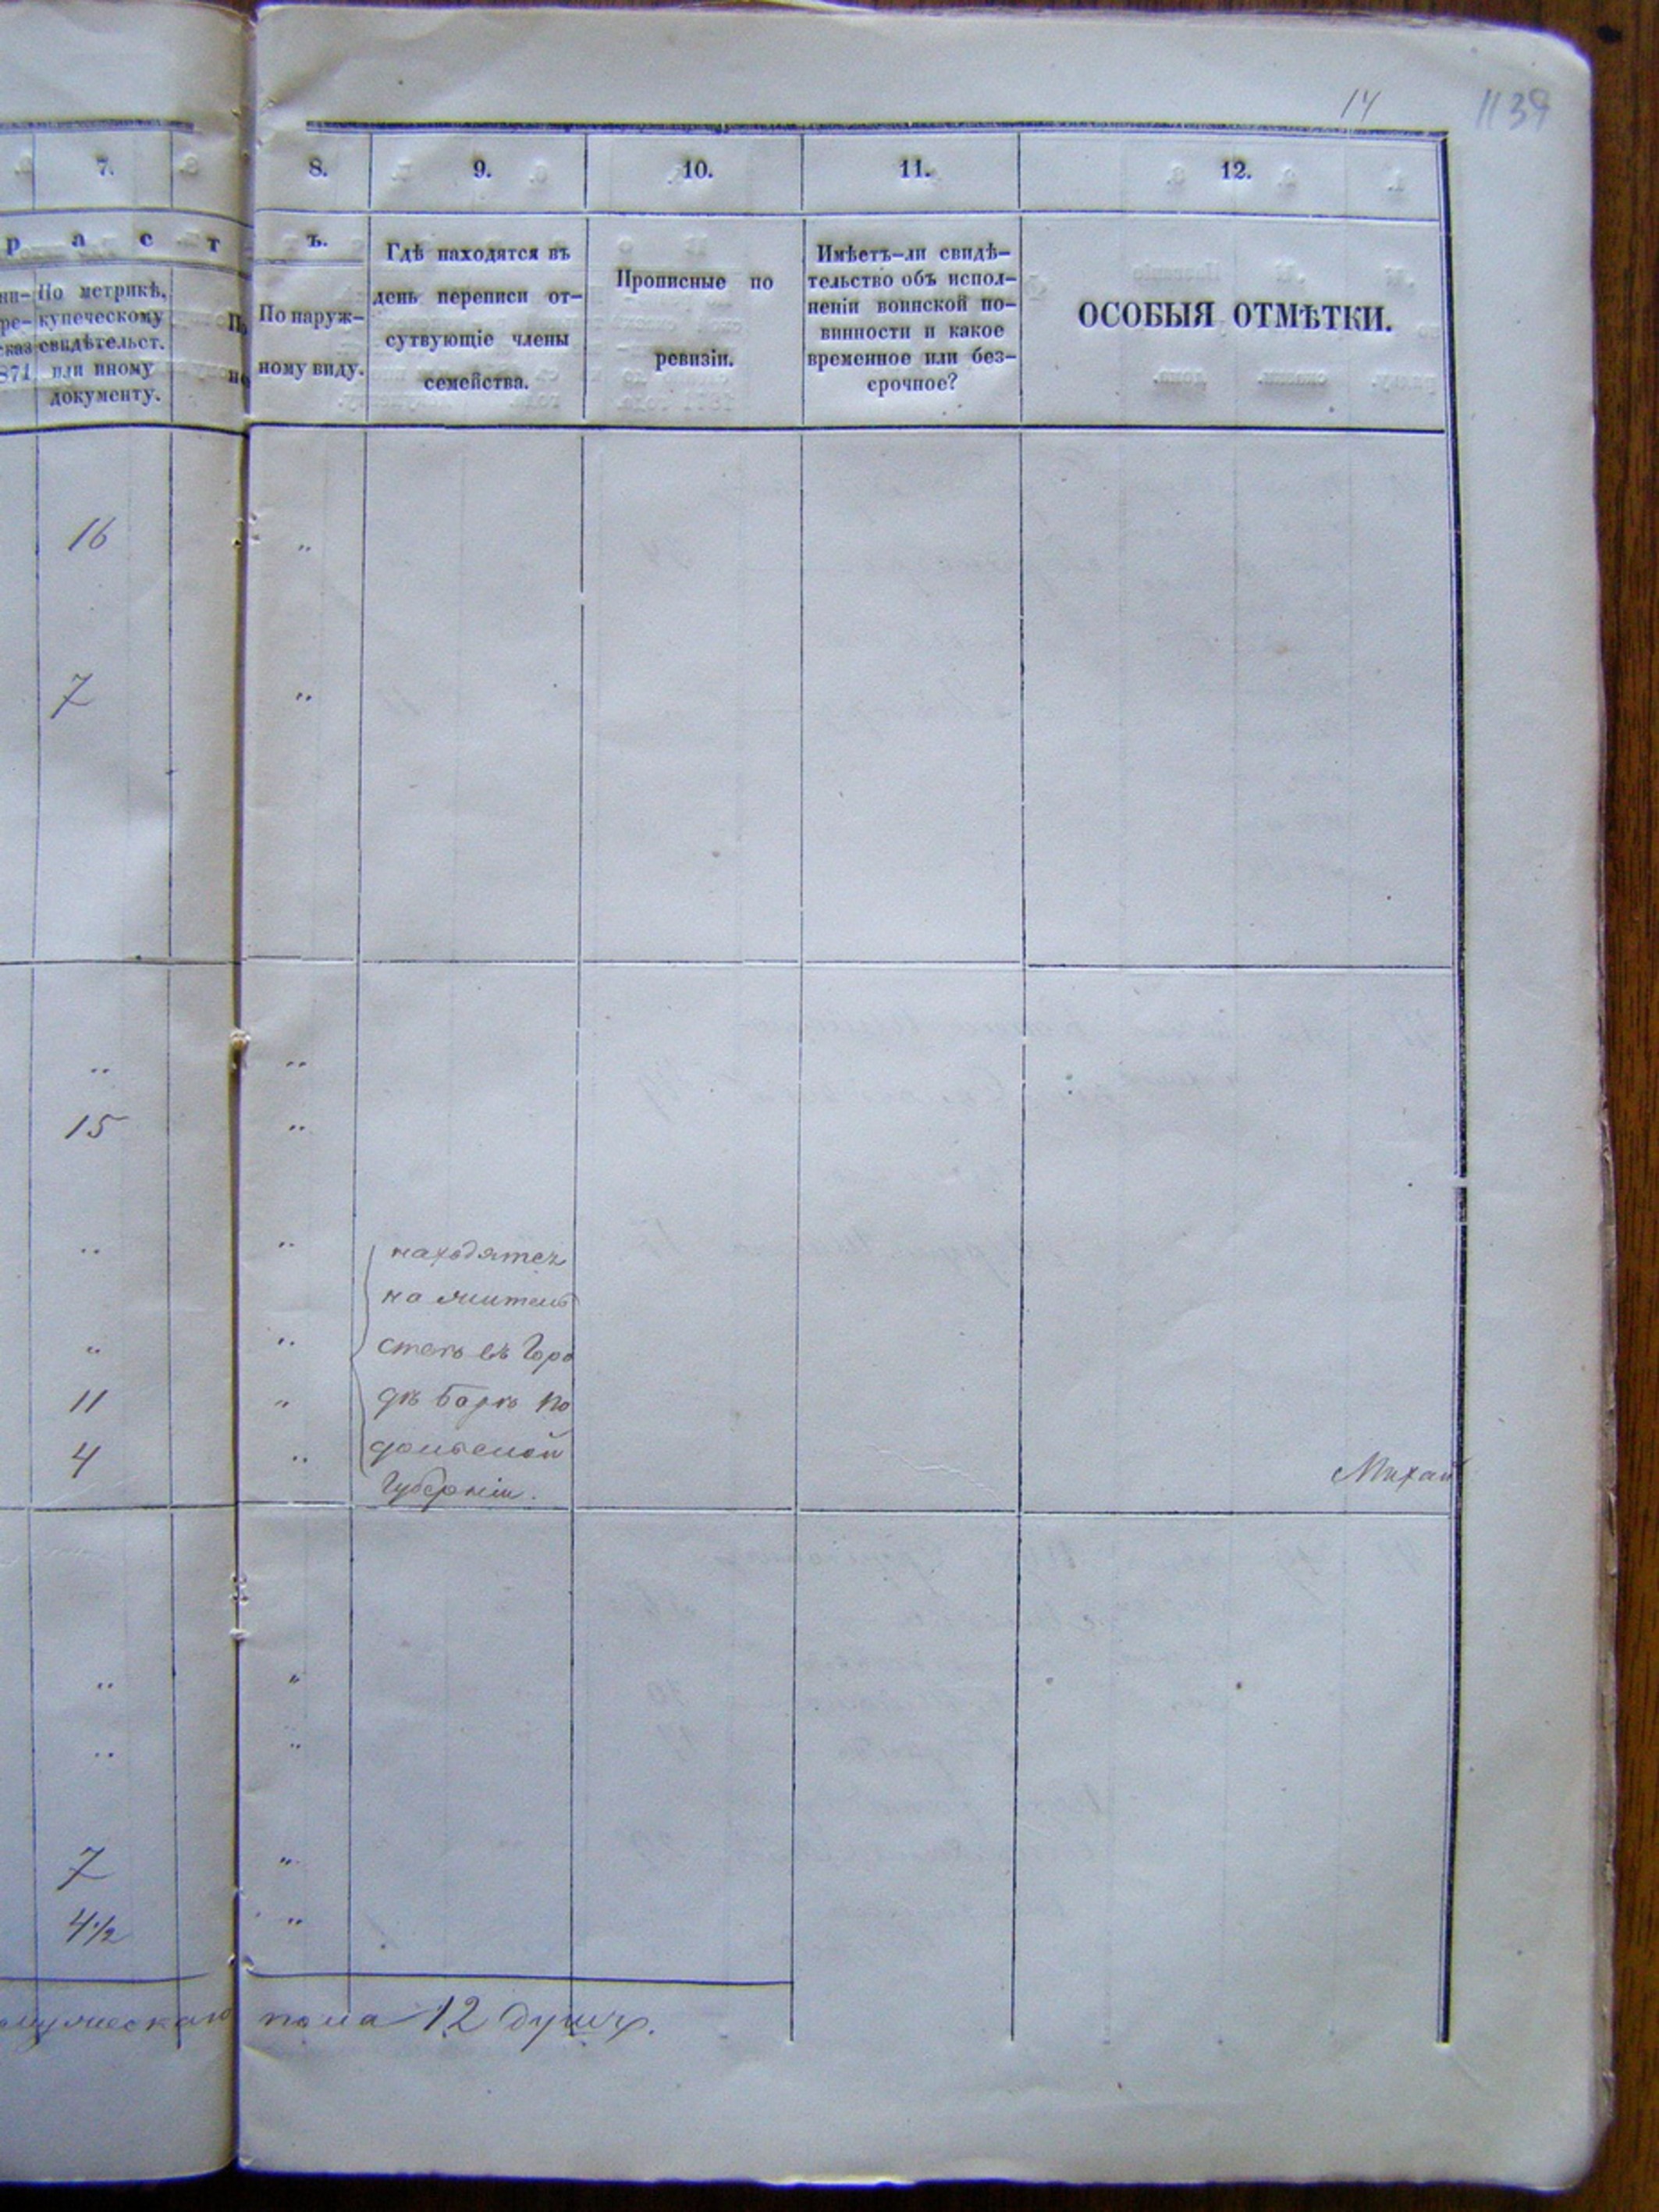 14
1139
7.
8.
9.
10.
11.
12.
р а с т
ъ.
По метрикѣ,
купеческому
свидѣтельст.
или иному
документу.
1871
По наруж-
ному виду.
Гдѣ находятся въ
день переписи от-
сутвующіе члены
семейства.
Прописные по
ревизіи.
Имѣетъ-ли свидѣ-
тельство объ испол-
неніи воинской по-
винности и какое
временное или без-
срочное?
ОСОБЫЯ ОТМѢТКИ.
16 "
7 "
" "
15 "
" "
находятся
на житель
" "
ствѣ въ Горо
11 "
дѣ Барѣ По
4 "
дольской
Губерніи.
Михаи
" "
" "
7 "
4½ "
мужескаго пола 12 душъ.